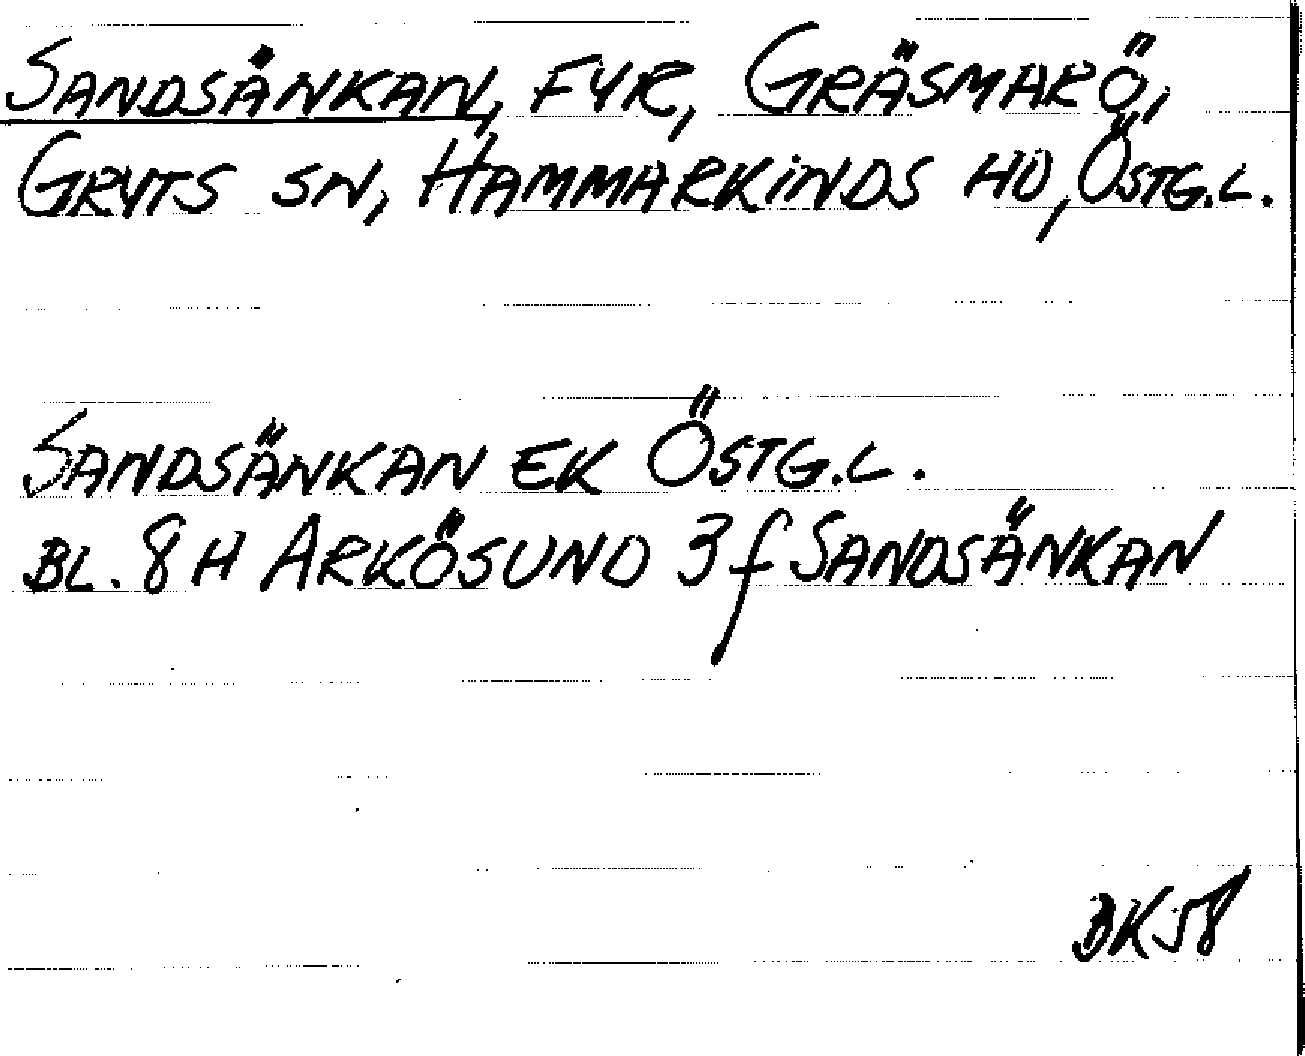 SANDSÄNKAN, FYR, GRÄSMARÖ,
GRYTS SN, HAMMARKINDS HD, ÖSTG.L.
SANDSÄNKAN EK ÖSTG.L.
BL. 8H ARKÖSUND 3f SANDSÄNKAN
BK58